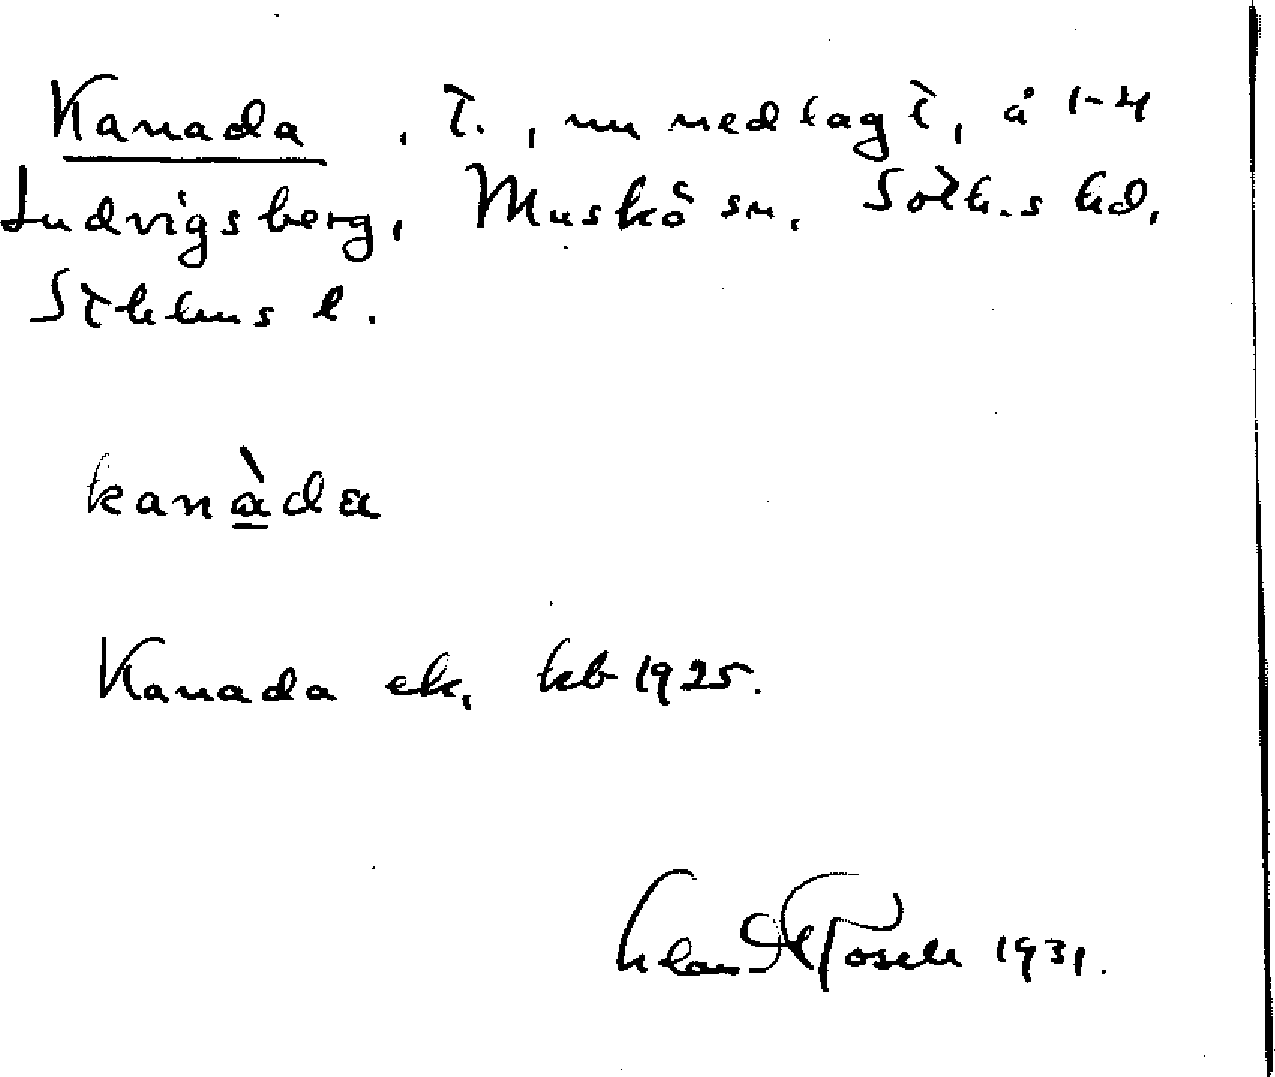 Kanada, t., nu nedlagt, å 1-4
Ludvigsberg, Muskö sn. Soth.s hd,
Sthlms l.
kanàda
Kanada ek, kb 1925.
1931.